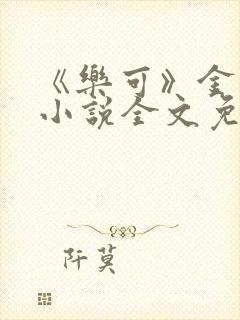 《樂可》金
小說全文免
阡莫